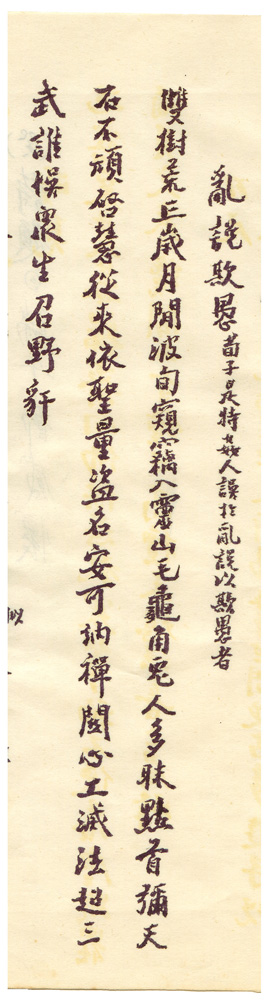 亂說欺愚 荀子是特姦人誤於亂說以欺愚者
雙樹荒丘歲月閒波旬窺竊入靈山毛龜角兔人多昧點首彌天
石不頑啓慧從來依聖量盜名安可納禪關心工滅法超三
武誰悮衆生召野豻